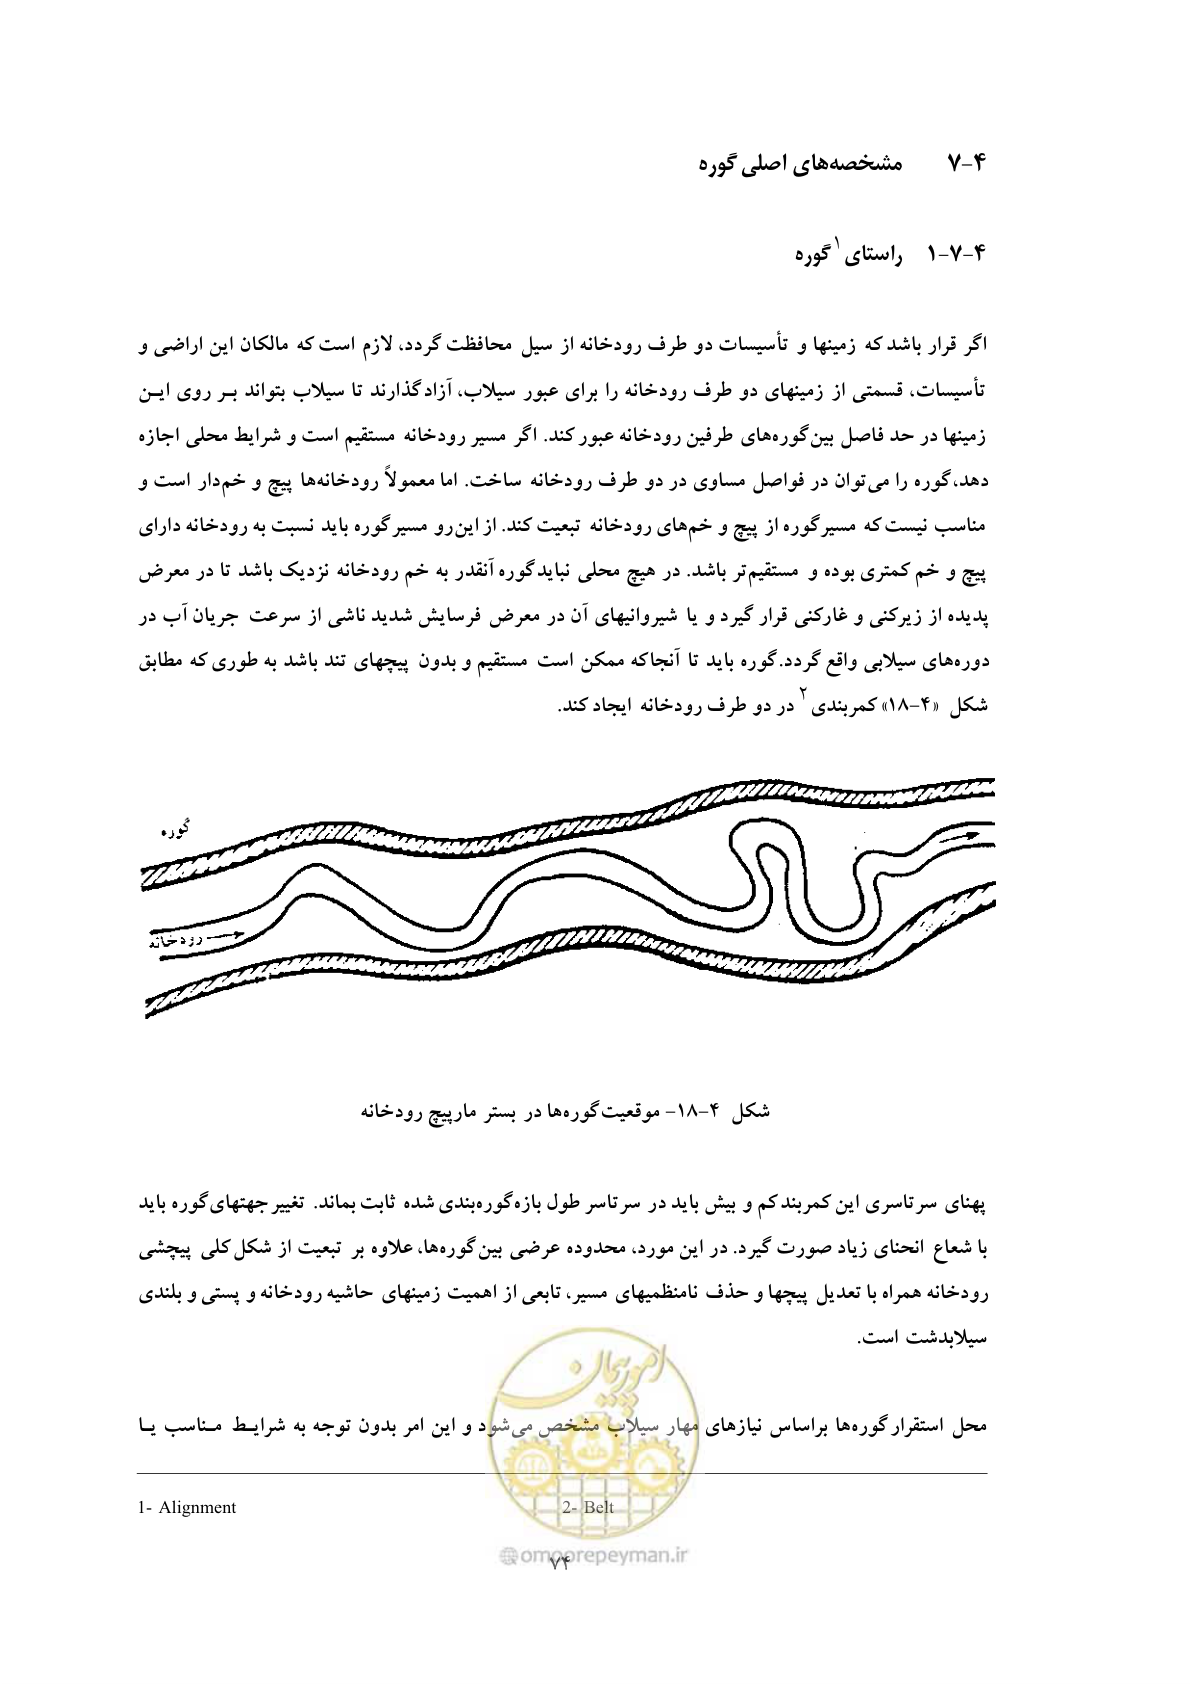 ۴-۷ مشخصه‌های اصلی گوره
۴-۷-۱ راستای۱ گوره
اگر قرار باشد که زمینها و تأسیسات دو طرف رودخانه از سیل محافظت گردد، لازم است که مالکان این اراضی و
تأسیسات، قسمتی از زمینهای دو طرف رودخانه را برای عبور سیلاب، آزاد گذارند تا سیلاب بتواند بر روی این
زمینها در حد فاصل بین گوره‌های طرفین رودخانه عبور کند. اگر مسیر رودخانه مستقیم است و شرایط محلی اجازه
دهد، گوره را می‌توان در فواصل مساوی در دو طرف رودخانه ساخت. اما معمولاً رودخانه‌ها پیچ و خم‌دار است و
مناسب نیست که مسیر گوره از پیچ و خم‌های رودخانه تبعیت کند. از این‌رو مسیر گوره باید نسبت به رودخانه دارای
پیچ و خم کمتری بوده و مستقیم‌تر باشد. در هیچ محلی نباید گوره آنقدر به خم رودخانه نزدیک باشد تا در معرض
پدیده از زیرکنی و غارکنی قرار گیرد و یا شیروانیهای آن در معرض فرسایش شدید ناشی از سرعت جریان آب در
دوره‌های سیلابی واقع گردد. گوره باید تا آنجاکه ممکن است مستقیم و بدون پیچهای تند باشد به طوری که مطابق
شکل «۴-۱۸» کمربندی۲ در دو طرف رودخانه ایجاد کند.
گوره
رودخانه
شکل ۴-۱۸- موقعیت گوره‌ها در بستر مارپیچ رودخانه
پهنای سرتاسری این کمربند کم و بیش باید در سرتاسر طول بازه گوره‌بندی شده ثابت بماند. تغییر جهتهای گوره باید
با شعاع انحنای زیاد صورت گیرد. در این مورد، محدوده عرضی بین گوره‌ها، علاوه بر تبعیت از شکل کلی پیچشی
رودخانه همراه با تعدیل پیچها و حذف نامنظمیهای مسیر، تابعی از اهمیت زمینهای حاشیه رودخانه و پستی و بلندی
سیلابدشت است.
محل استقرار گوره‌ها براساس نیازهای مهار سیلاب مشخص می‌شود و این امر بدون توجه به شرایط مناسب یا
1- Alignment 2- Belt
امور پیمان
@omoorepeyman.ir
۷۴